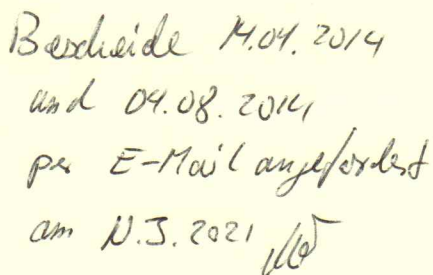 Bescheide 14.04.2014
und 04.08.2014
per E-Mail angefordert
am 2021